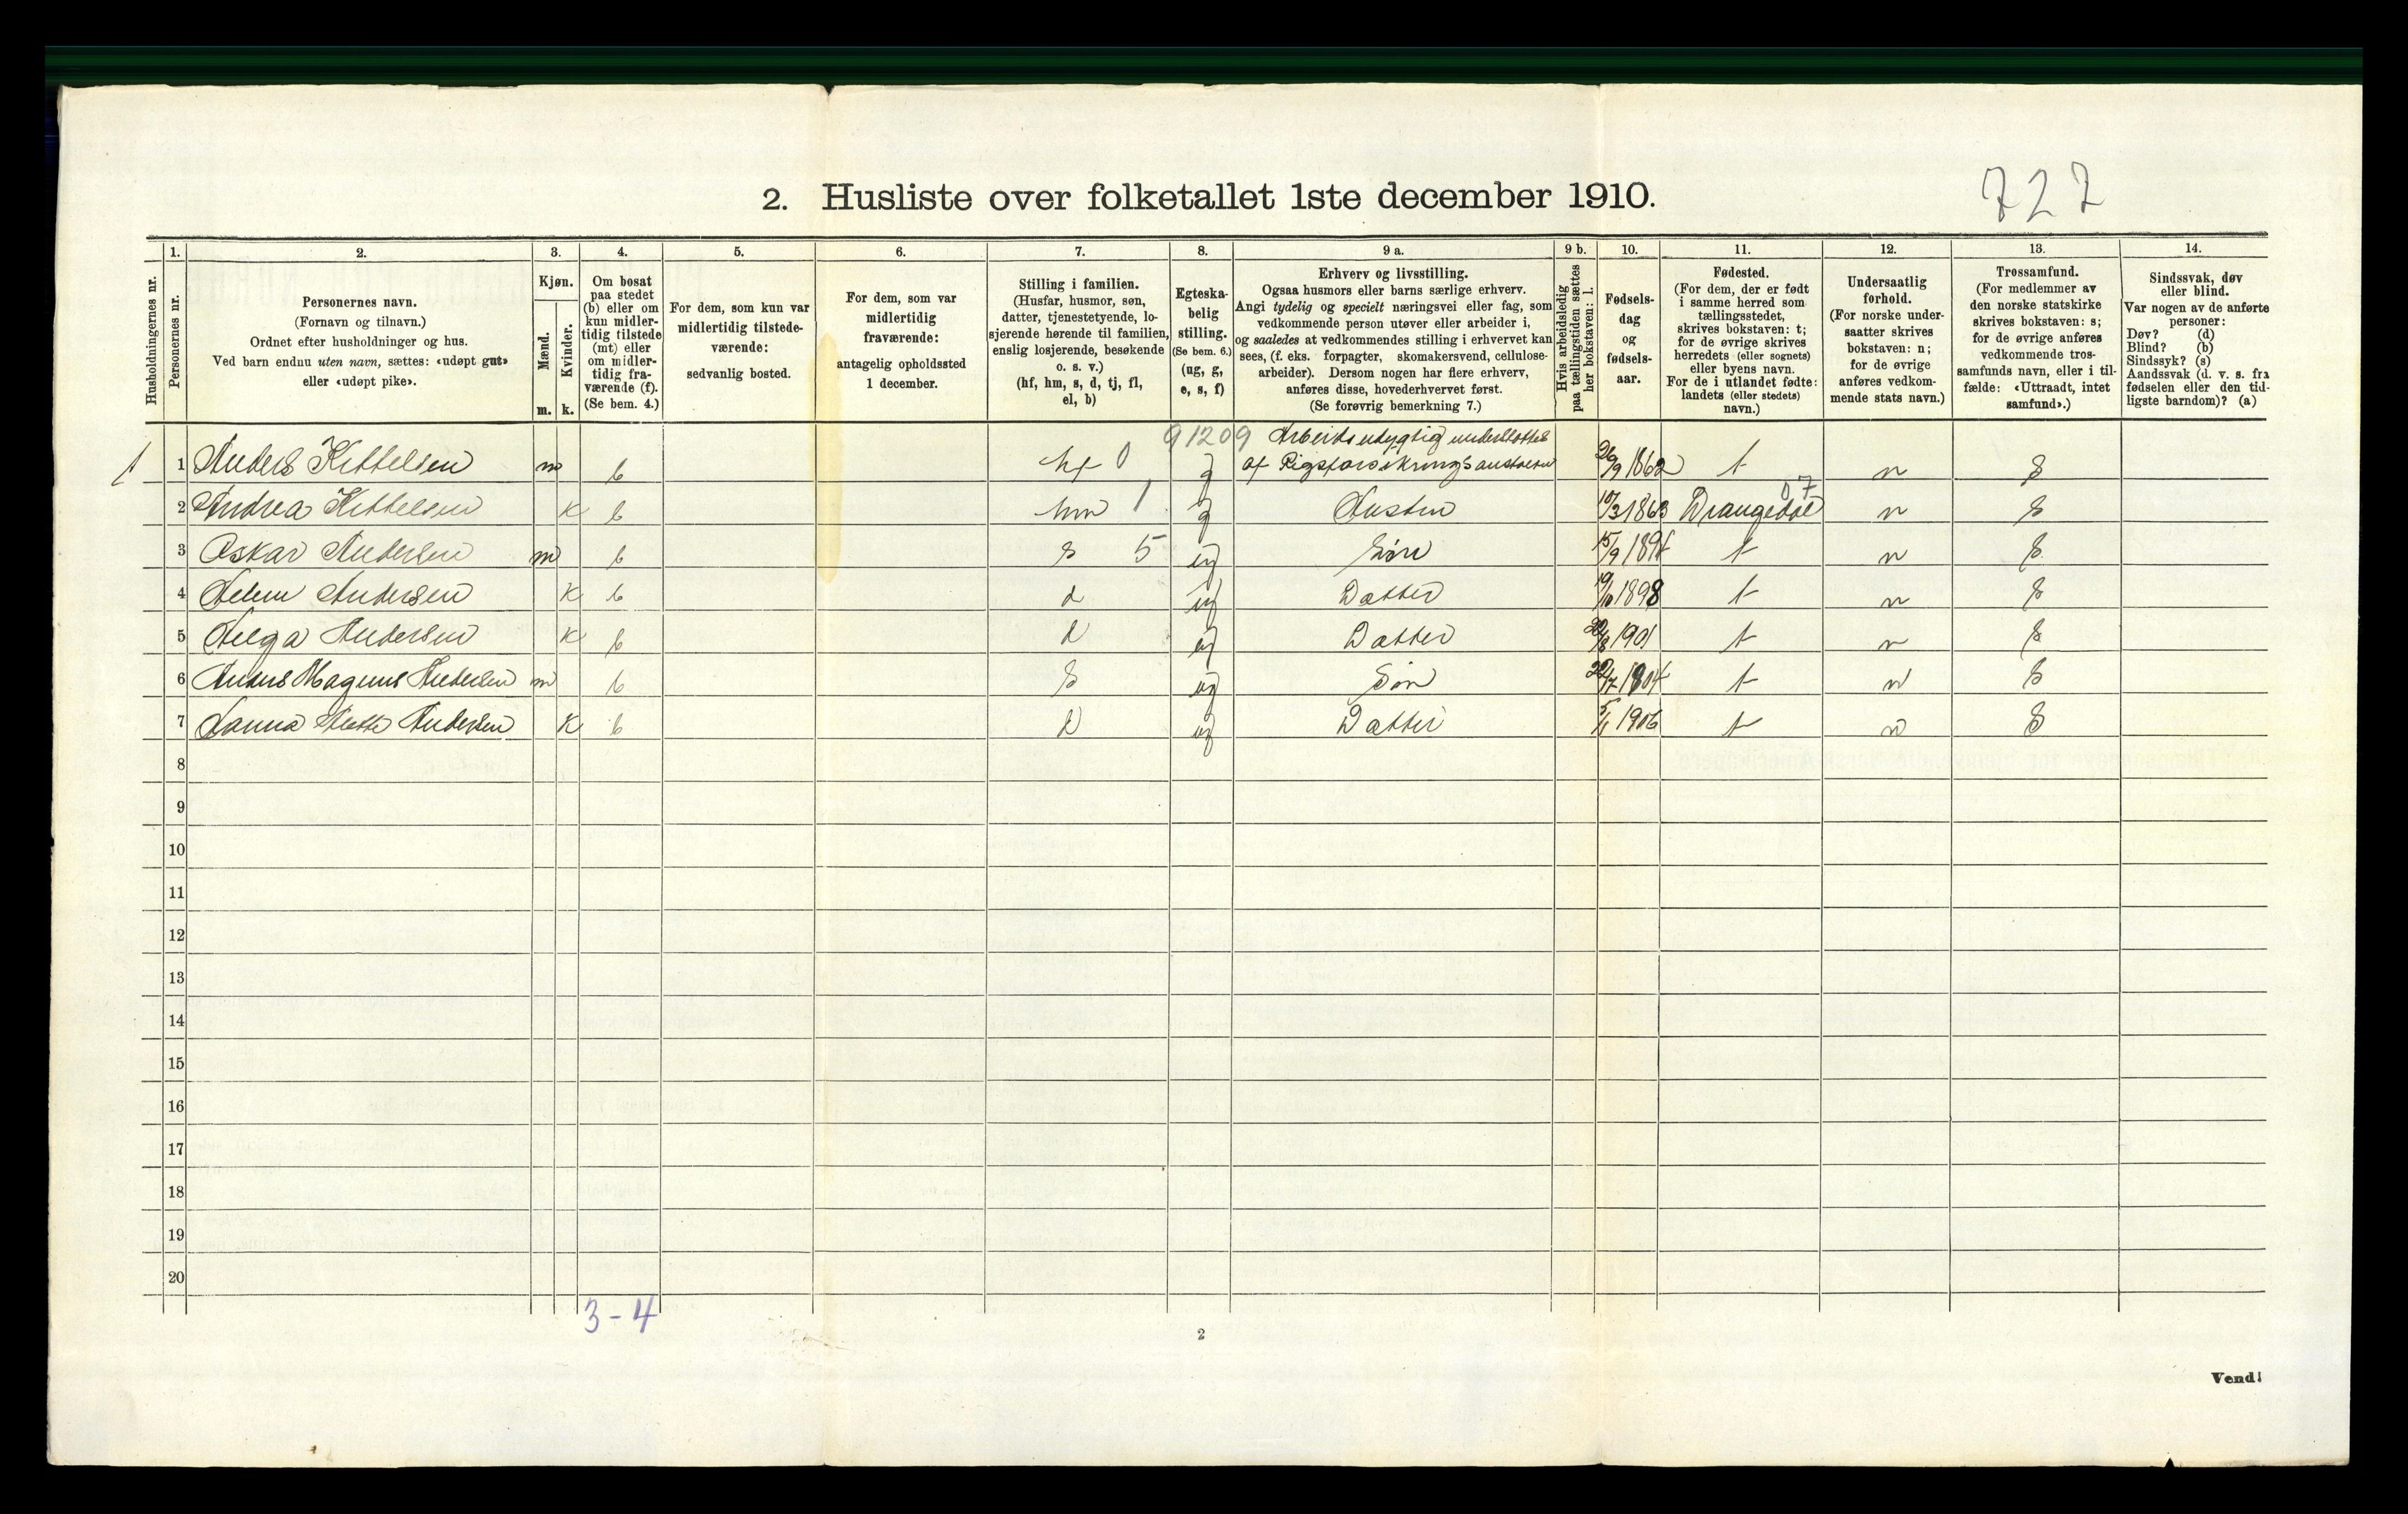 727
2. Husliste over folketallet 1ste december 1910.
Husholdningernes nr.
1.
Personernes nr.
2.
Personernes navn.
(Fornavn og tilnavn.)
Ordnet efter husholdninger og hus.
Ved barn endnu uten navn, sættes: «udøpt gut»
eller «udøpt pike».
3.
Kjøn.
Mænd.
Kvinder.
m. k.
4.
Om bosat
paa stedet
(b) eller om
kun midler-
tidig tilstede
(mt) eller
om midler-
tidig fra-
værende (f).
(Se bem. 4.)
5.
For dem, som kun var
midlertidig tilstede-
værende:
sedvanlig bosted.
6.
For dem, som var
midlertidig
fraværende:
antagelig opholdssted
1 december.
7.
Stilling i familien.
(Husfar, husmor, søn,
datter, tjenestetyende, lo-
sjerende hørende til familien,
enslig losjerende, besøkende
o. s. v.)
(hf, hm, s, d, tj, fl,
el, b)
8.
Egteska-
belig
stilling.
(Se bem. 6.)
(ug, g,
e, s, f)
9 a.
Erhverv og livsstilling.
Ogsaa husmors eller barns særlige erhverv.
Angi tydelig og specielt næringsvei eller fag, som
vedkommende person utøver eller arbeider i,
og saaledes at vedkommendes stilling i erhvervet kan
sees, (f. eks. forpagter, skomakersvend, cellulose-
arbeider). Dersom nogen har flere erhverv,
anføres disse, hovederhvervet først.
(Se forøvrig bemerkning 7.)
9 b.
Hvis arbeidsledig
paa tællingstiden sættes
her bokstaven: l.
10.
Fødsels-
dag
og
fødsels-
aar.
11.
Fødested.
(For dem, der er født
i samme herred som
tællingsstedet,
skrives bokstaven: t;
for de øvrige skrives
herredets (eller sognets)
eller byens navn.
For de i utlandet fødte:
landets (eller stedets)
navn.)
12.
Undersaatlig
forhold.
(For norske under-
saatter skrives
bokstaven: n;
for de øvrige
anføres vedkom-
mende stats navn.)
13.
Trossamfund.
(For medlemmer av
den norske statskirke
skrives bokstaven: s;
for de øvrige anføres
vedkommende tros-
samfunds navn, eller i til-
fælde: «Uttraadt, intet
samfund».)
14.
Sindssvak, døv
eller blind.
Var nogen av de anførte
personer:
Døv? (d)
Blind? (b)
Sindssyk? (s)
Aandssvak (d. v. s. fra
fødselen eller den tid-
ligste barndom)? (a)
91209 Arbeidsudygtig understøttes
1 1 Anders Kittelsen m b hf 0 g af Rigsforsikringsanstalten 26/9 1862 t n S
2 Andrea Kittelsen k b hm 1 g Hustru 10/3 1863 Drangedal 07 n S
3 Oskar Andersen m b s 5 ug Søn 15/9 1894 t n S
4 Andersen k b d ug Datter 19/10 1898 t n S
5 Helga Andersen k b d ug Datter 1901 t n S
6 Anders Magnus Andersen m b S ug Søn t n S
7 Andersen k b d ug Datter 5/1 1906 t n S
8
9
10
11
12
13
14
15
16
17
18
19
20
3-4
2
Vend!